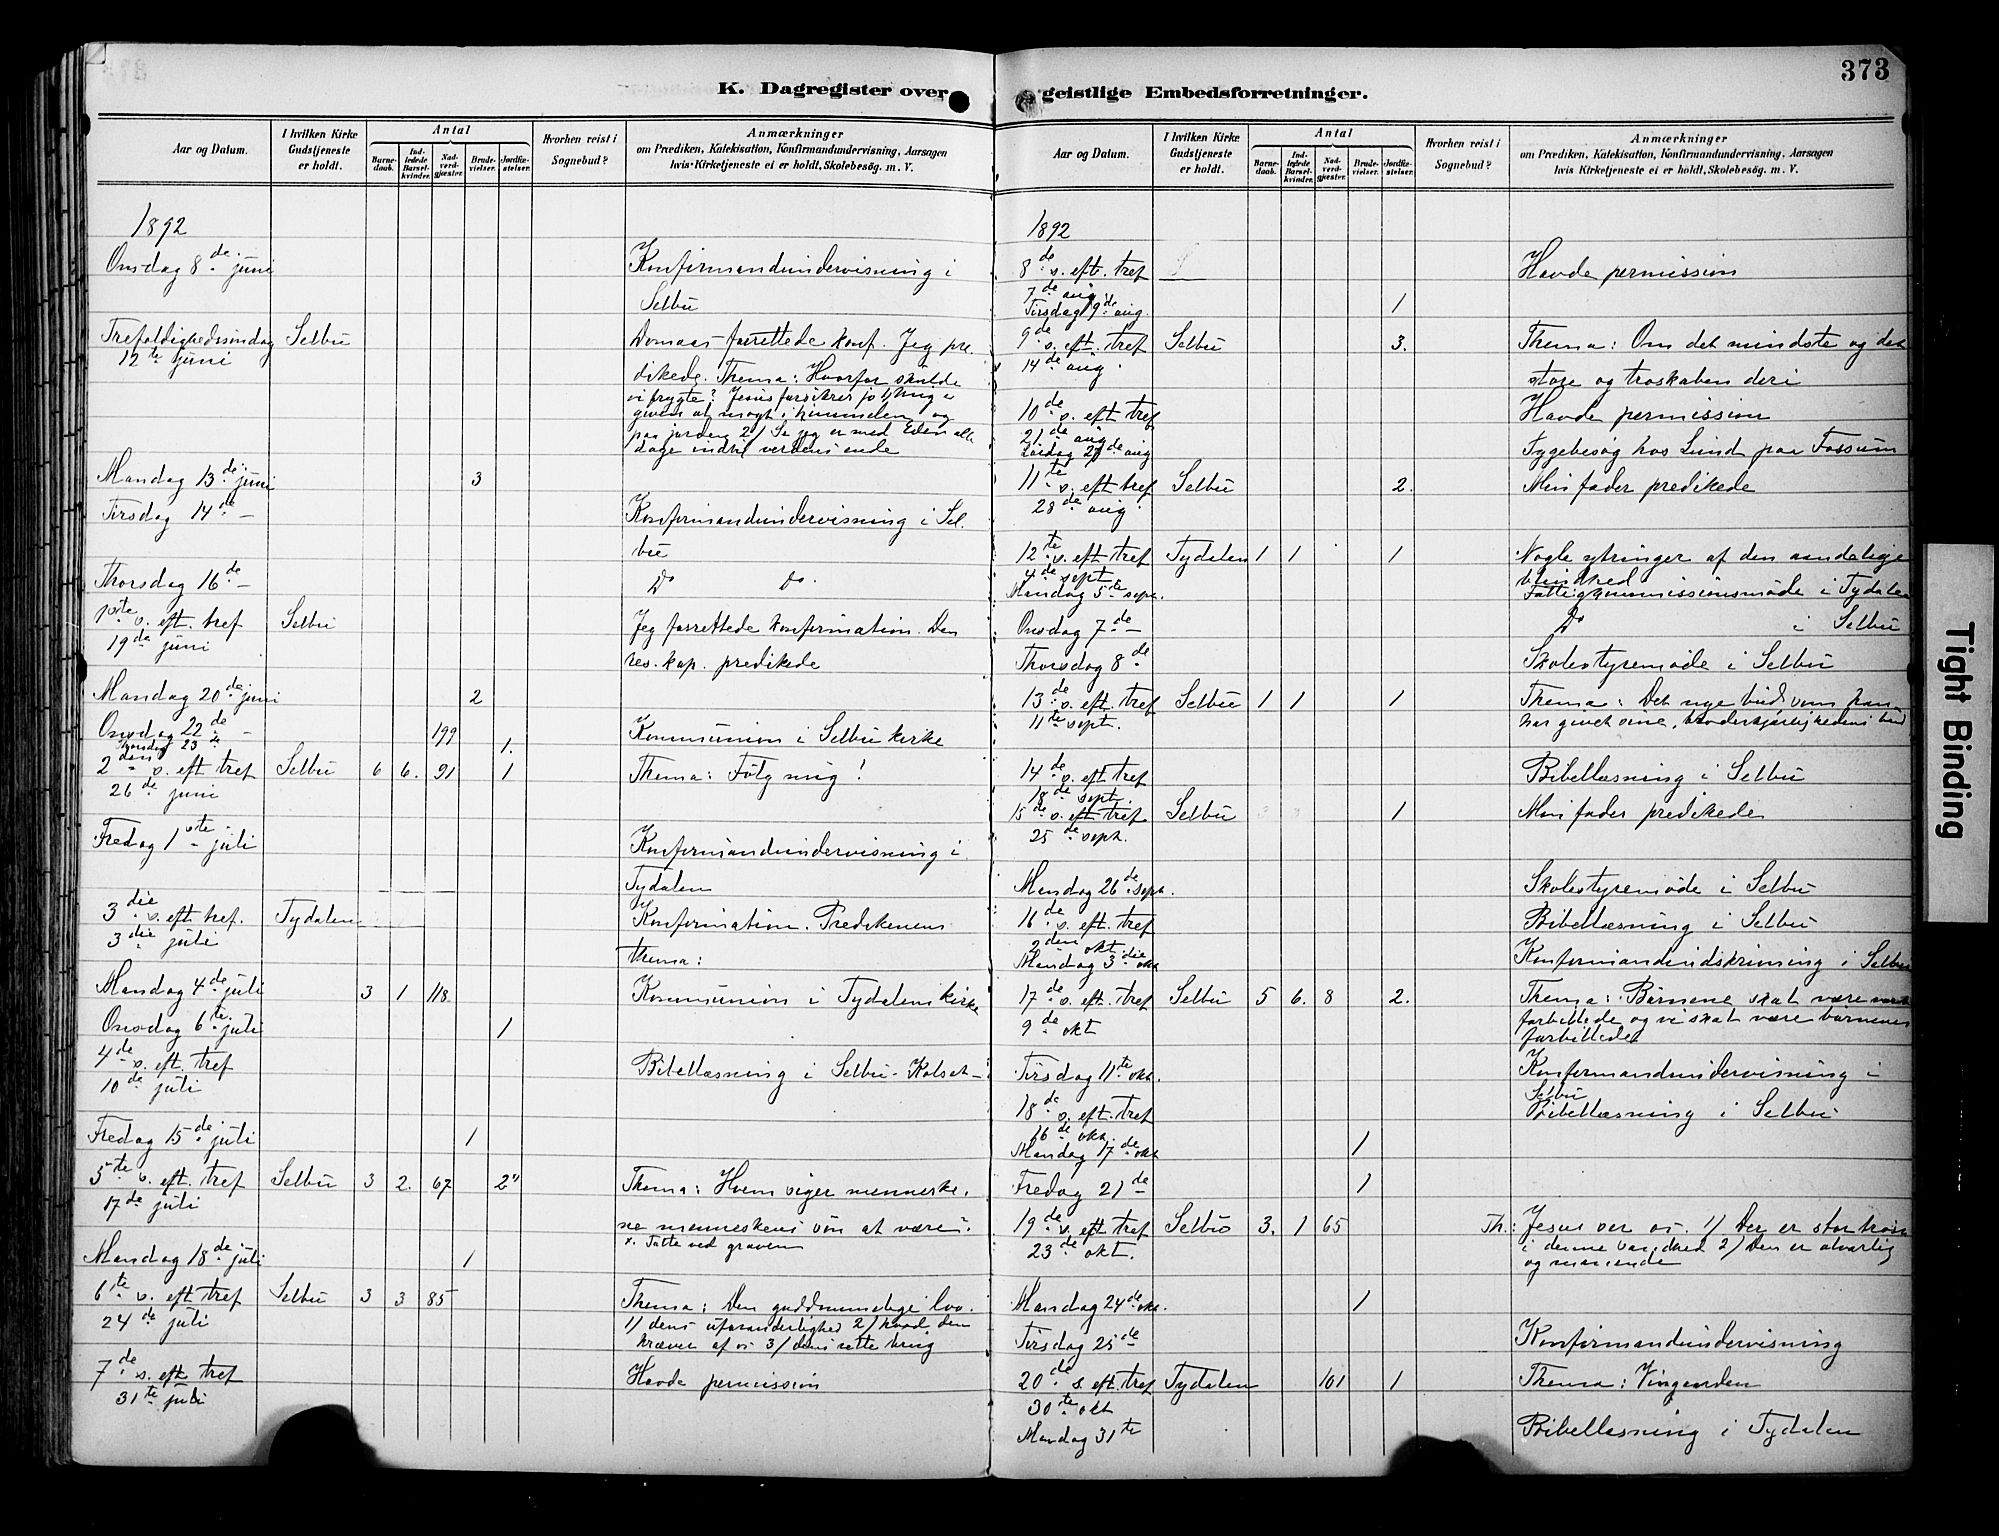 373
K. Dagregister over geistlige Embedsforretninger.
Aar og Datum.
I hvilken Kirke Gudstjeneste er holdt.
Antal
Barnedaab.
Indledede Barselkvinder.
Nadverdgjæster.
Brudevielser.
Jordfæstelser.
Hvorhen reist i Sognebud?
Anmærkninger
om Prædiken, Katekisation, Konfirmandundervisning, Aarsagen
hvis Kirketjeneste ei er holdt, Skolebesøg. m. V.
1892
Onsdag 8de juni Konfirmandundervisning i
Selbu
Trefoldighedssøndag Selbu Domaas forrettede konf. Jeg pre
12te juni dikede. Thema: Hvorfor skulde
vi frygte? Jesus forsikrer jo 1/ Mig er
given al magt i himmelen og
paa jorden 2/ Se jeg er med Eder alle
dage indtil verdens ende
Mandag 13de juni 3
Tirsdag 14de – Konfirmandundervisning i Sel
bu
Thorsdag 16de – Do Do.
1ste s. eft. tref Selbu Jeg forrettede konfirmation. Den
19de juni res. kap. predikede
Mandag 20de juni 2
Onsdag 22de – 199 Kommunion i Selbu kirke
Thorsdag 23de 1.
2den s. eft tref Selbu 6 6. 91 1 Thema: Følg mig!
26de juni
Fredag 1ste juli Konfirmandundervisning i
Tydalen
3die s. eft. tref. Tydalen Konfirmation. Predikenens
3die juli thema:
Mandag 4de juli 3 1 118 Kommunion i Tydalens kirke
Onsdag 6te juli 1
4de s. eft. tref Bibellæsning i Selbu - Kolset –
10de juli
Fredag 15de juli 1
5te s. eft. tref Selbu 3 2. 67 2x) Thema: Hvem siger menneske.
17de juli ne menneskens søn at være.
x. Talte ved graven
Mandag 18de juli 1
6te s. eft tref Selbu 3 3 85 Thema: Den guddommelige lov.
24de juli 1/ dens uforanderlighed 2/ hvad den
kræver af os 3/ dens rette brug
7de s. eft tref Havde permission
31te juli
Aar og Datum.
I hvilken Kirke Gudstjeneste er holdt.
Antal
Barnedaab.
Indledede Barselkvinder.
Nadverdgjæster.
Brudevielser.
Jordfæstelser.
Hvorhen reist i Sognebud?
Anmærkninger
om Prædiken, Katekisation, Konfirmandundervisning, Aarsagen
hvis Kirketjeneste ei er holdt, Skolebesøg. m. V.
1892
8de s. eft. tref Havde permission
7de aug
Tirsdag 9de aug. 1
9de s. eft. tref Selbu 3. Thema: Om det mindste og det
14de aug store og troskaben deri
10de s. eft tref Havde permission
21de aug
Lørdag 27de aug Sygebesøg hos Lund paa Fossum
11te s. eft tref Selbu 2. Min fader predikede
28de aug.
12te s. eft tref Tydalen 1 1 1 Nogle ytringer af den aandelige
4de sept blindhed
Mandag 5te sept. Fattigkommissionsmøde i Tydalen
Onsdag 7de – Do i Selbu
Thorsdag 8de Skolestyremøde i Selbu
13de s. eft. tref Selbu 1 1 1 Thema: Det nye bud som han
11te sept. har givet sine, broderkjærlighedens bud
14de s. eft. tref Bibellæsning i Selbu
18de sept.
15de s. eft tref Selbu 1 Min fader predikede
25de sept.
Mandag 26de sept. Skolestyremøde i Selbu
16de s. eft. tref Bibellæsning i Selbu
2den okt.
Mandag 3die okt Konfirmandindskrivning i Selbu
17de s. eft. tref Selbu 5 6. 8 2. Thema: Børnene skal være vort
9de okt forbillede og vi skal være børnenes
forbillede
Tirsdag 11te okt. Konfirmandundervisning i
Selbu
18de s. eft. tref Bibellæsning i Selbu
16de okt.
Mandag 17de okt 1
Fredag 21de – 1
19de s. eft tref Selbu 3. 1 65 Th: Jesus ser os. 1/ Der er stor trøst
23de okt. i denne vished 2/ Den er alvorlig
og manende
Mandag 24de okt. 1
Tirsdag 25de Konfirmandundervisning
20de s. eft. tref Tydalen 101 1 Thema: Vingaarden
30te okt
Mandag 31te Bibellæsning i Tydalen
Tight Binding